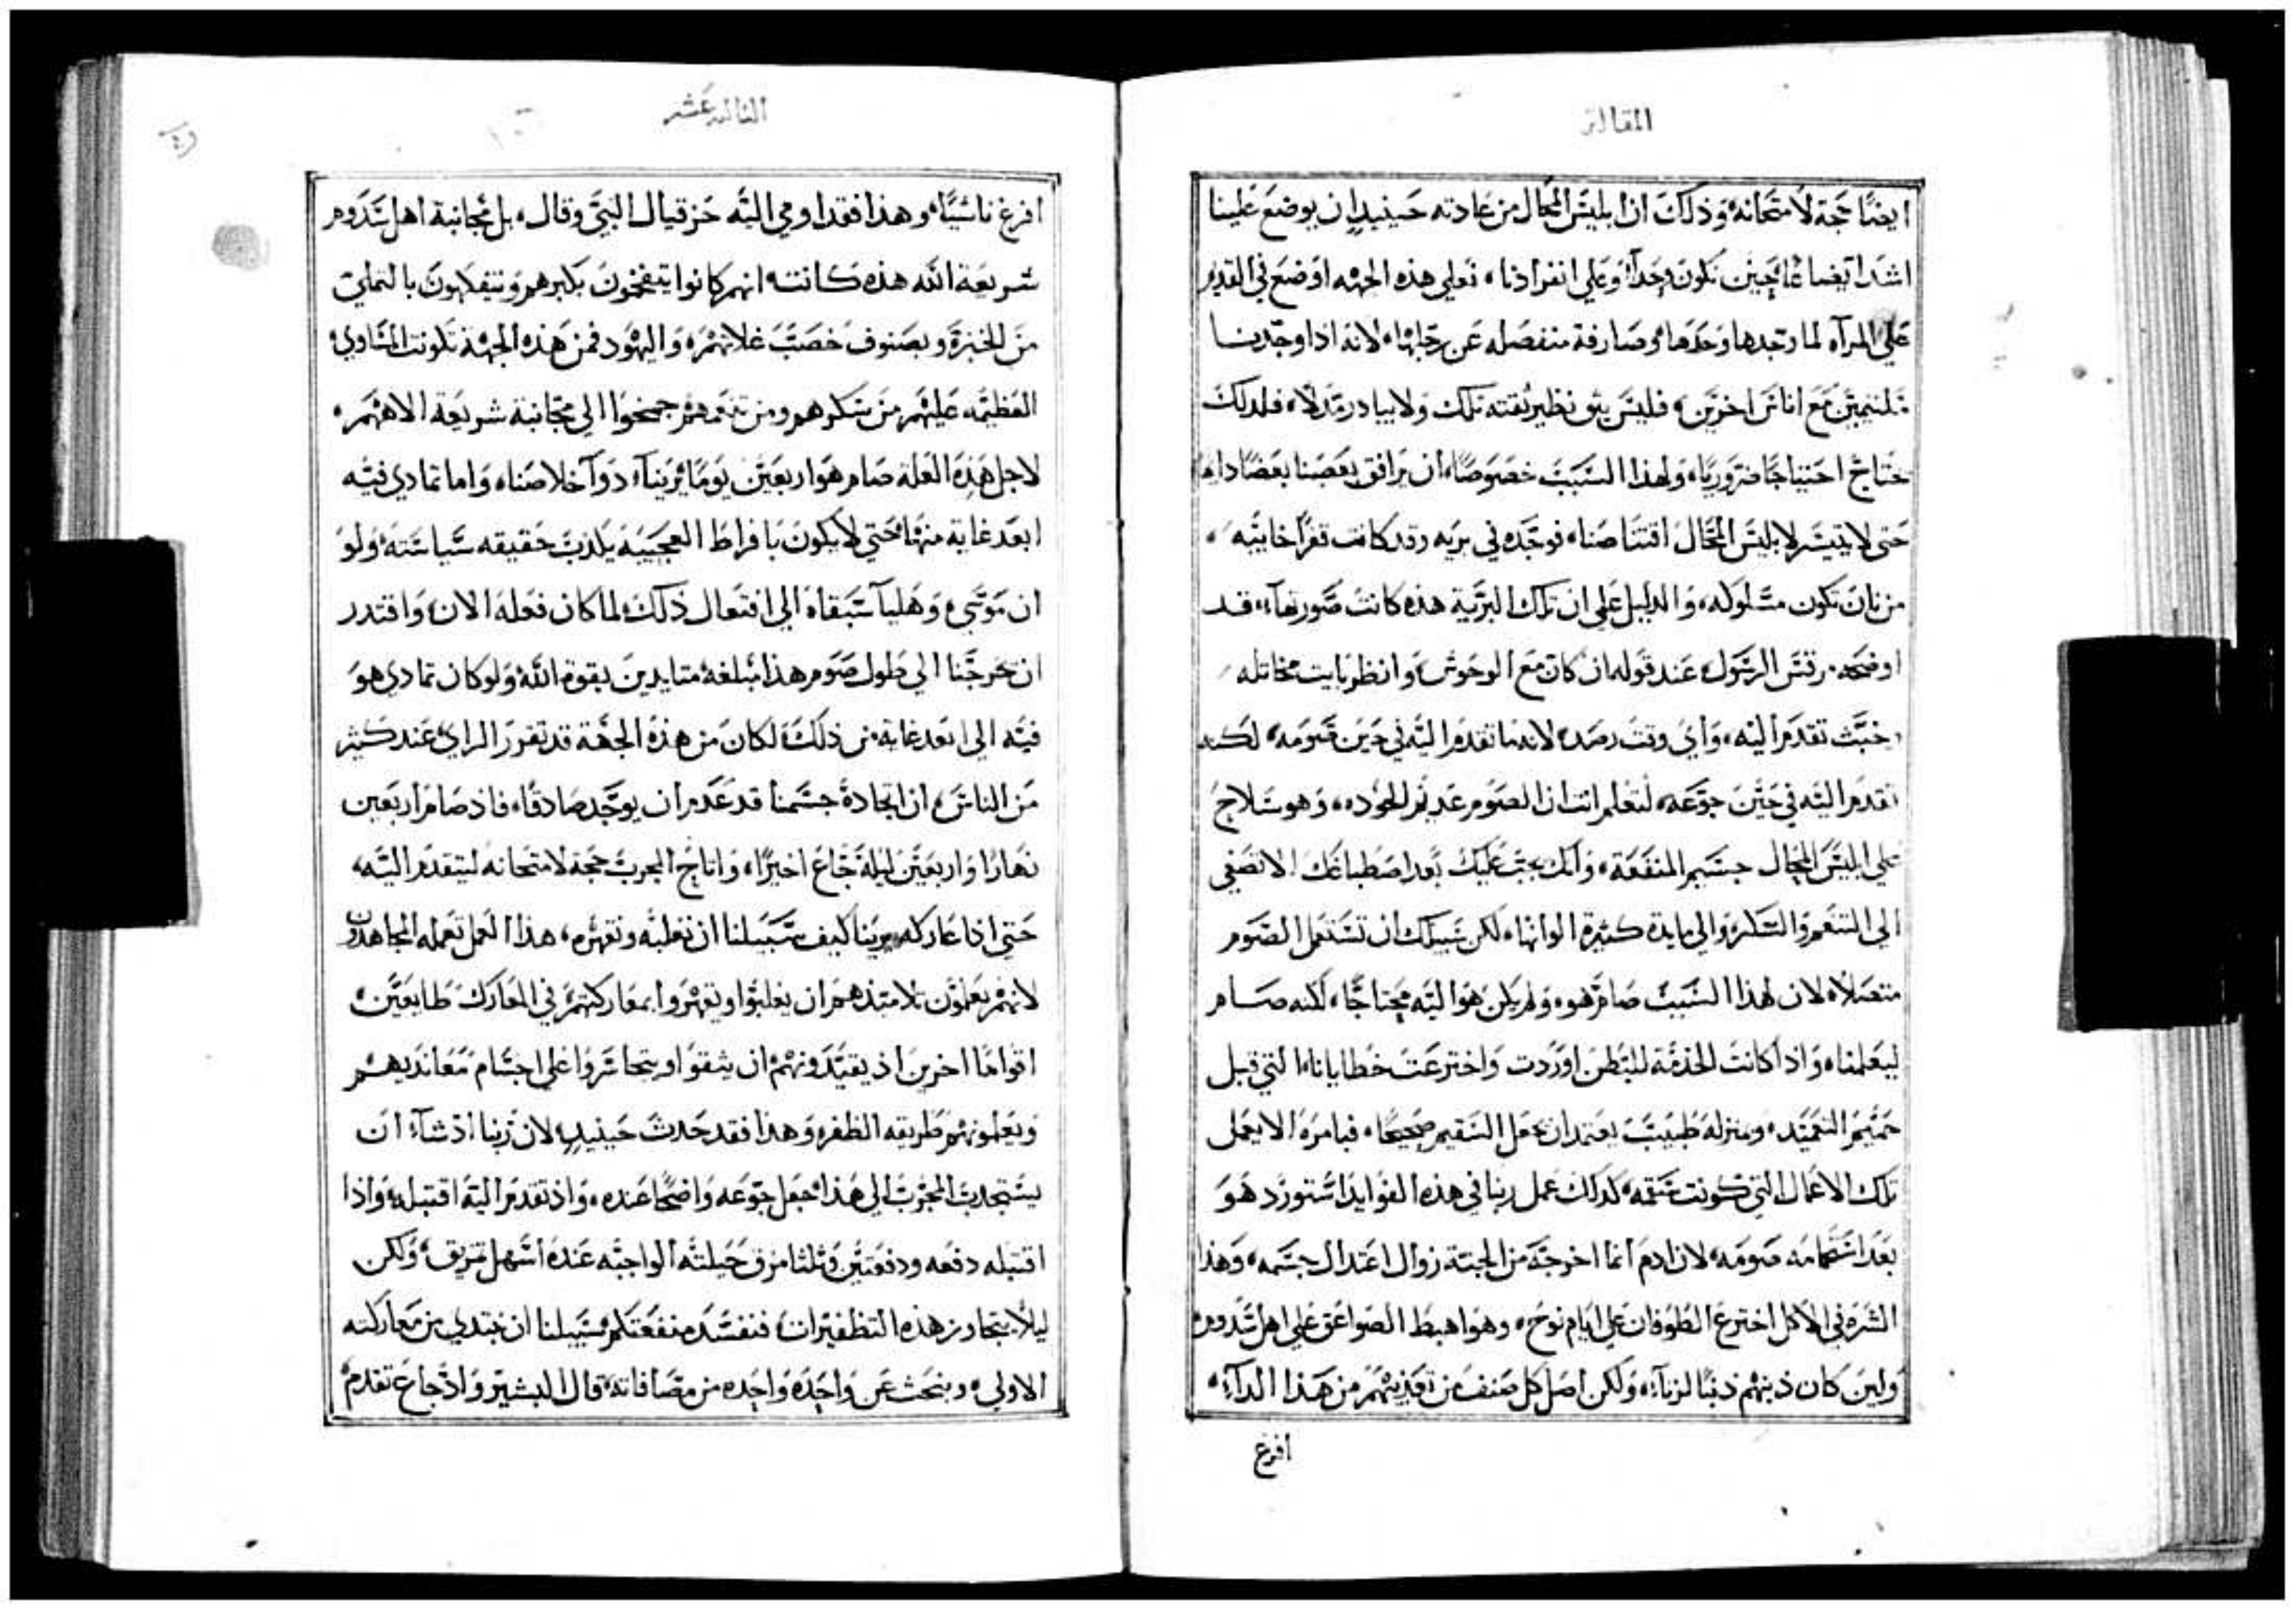 المقالة
ايضًا حجة لامتحانه، وذلك ان ابليس المحال من عادته حينيذٍ ان يوضع علينا
اشد ايضاعًا حين نكون وحدنا، وعلي انفرادنا، فعلي هذه الجهه اوضع في القديم
علي المرآه لما وجدها وحدها، وصارفة منفصله عن رجلها، لانه اذا وجدنا
ملتيمين مع اناس اخرين، فليس يثق نظير ثقته تلك ولا يبادر مدلاً، فلذلك
نحتاج احتياجًا ضروريًا، ولهذا السبب خصوصًا، ان يرافق بعضنا بعضًا دايمًا
حتى لا يتيسر لابليس المحال اقتناصنا، فوجده في بريه وقد كانت قفرًا خايبه،
من ان تكون مسلوكه، والدليل علي ان تلك البرية هذه كانت صورتها، قد
اوضحه مرقس الرسول، عند قوله ان كان مع الوحوش، وانظر بايت مخاتله
وخبث تقدم اليه، واي وقت رصده لانه ما تقدم اليه في حين صومه، لكنه
تقدم اليه في حين جوعه، لتعلم انت ان الصوم عديم الجوده، وهو سلاح
علي ابليس المحال جسيم المنفعة، وانك يجب عليك بعد اصطباغك الا تصغي
الى التنعم والسكر والي مايدة كثيرة الوانها، لكن سبيلك ان تستعمل الصوم
متصلاً، لان لهذا السبب صام هو، ولم يكن هو اليه محتاجًا، لكنه صام
ليعلمنا، واذ كانت الخدمة للبطن اوردت واخترعت خطايانا، التي قبل
حميم التعميد، وبمنزلة طبيب يعتمد ان يجعل السقيم صحيحًا، فيامره الا يعمل
تلك الاعمال التي كونت سقمه، كذلك عمل ربنا في هذه الفوايد استورد هو
بعد استحمامه صومه، لان ادم انما اخرجه من الجنة زوال اعتدال جسمه، وهذا
الشره في الاكل اخترع الطوفان علي ايام نوح، وهو اهبط الصواعق علي اهل سدوم،
ولين كان ذنبهم ذنبًا لزناء، ولكن اصل كل صنف من تعذيبهم من هذا الدآء،
افرع
الثالثه عشر
افرع ناشيًا، وهذا فقد اومي اليه حزقيال النبي وقال، بل مجانبة اهل سدوم
شريعة الله هذه كانت، انهم كانوا يتفخون بكبرهم ويتفكهون بالتملي
من الخبز، وبصنوف خصب غلاتهم، واليهود فمن هذه الجهة تكونت المساوي
العظيمه عليهم من سكرهم ومن تنعمهم جمحوا الي مجانبة شريعة الاههم،
لاجل هذه العلة صام هو اربعين يومًا، يرينا، دوآ خلاصنا، واما تمادي فيه
ابعد غاية منها، حتي لا يكون بافراط العجيبة يكذب حقيقه سياسته، ولو
ان موسي، وهليآ سبقاه الي افتعال ذلك، لما كان فعله الان، واقتدر
ان يخرجنا الي طول صوم هذا مبلغه متايدين بقوة الله، ولو كان تمادي هو
فيه الى ابعد غاية من ذلك، لكان من هذه الجهة قد تقور الراي عند كثير
من الناس، ان اتحادة جسمنا قد عدم ان يوجد صادقًا، فاذ صام اربعين
نهارًا واربعين ليلة جاع اخيرًا، واتاح المجرب حجة لامتحانه ليتقدم اليه،
حتي اذا عاركه يرينا كيف سبيلنا ان نغلبه ونقهره، هذا العمل تعمله المجاهدون
لانهم يعلمون تلامتذهم ان يغلبوا ويقهروا بمعاركتهم في المعارك طايعين،
اقوامًا اخرين اذ يقيدونهم ان يثقوا ويتجاسروا علي اجسام معانديهم
ويعلمونهم طريقه الظفر، وهذا فقد حدث حينيذٍ، لان ربنا اذ شآء ان
يستجدب المجرب الي هذا، جعل جوعه واضحًا عنده، واذ تقدم اليه اقتبله، واذا
اقتبله دفعه ودفعتين وثلثا مزق حيلته الواجبه عنده اسهل تمزيق، ولكن
ليلا يتجاوز هذه التظفيرات، فنفسد منفعتكم، سبيلنا ان نبتدي من معاركته
الاولي، ونبحث عن واحده واحده من مصافاته، قال البشير واذ جاع تقدم